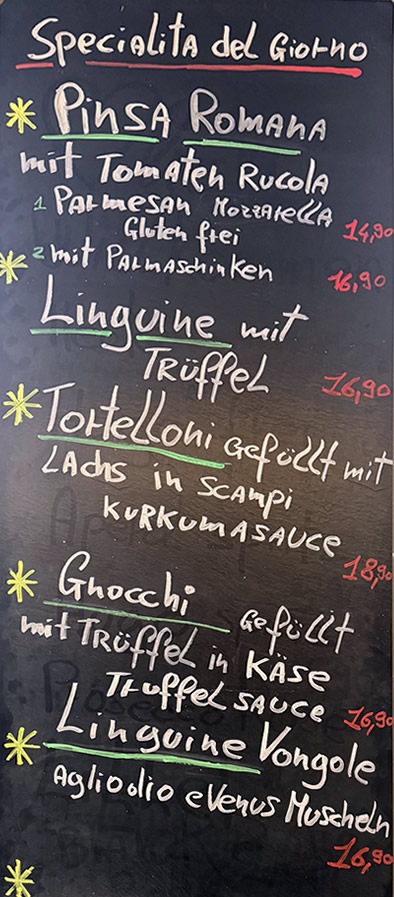 Specialita del Giorno
* Pinsa Romana
mit Tomaten Rucola
1 Parmesan Mozzarella
Gluten frei 14,90
* 2 mit Parmaschinken 16,90
Linguine mit
Trüffel 16,90
* Tortelloni gefüllt mit
Lachs in Scampi
Kurkumasauce
18,90
* Gnocchi gefüllt
mit Trüffel in Käse
Truffel sauce 16,90
* Linguine Vongole
Aglio olio e Venus Muscheln
16,90
*